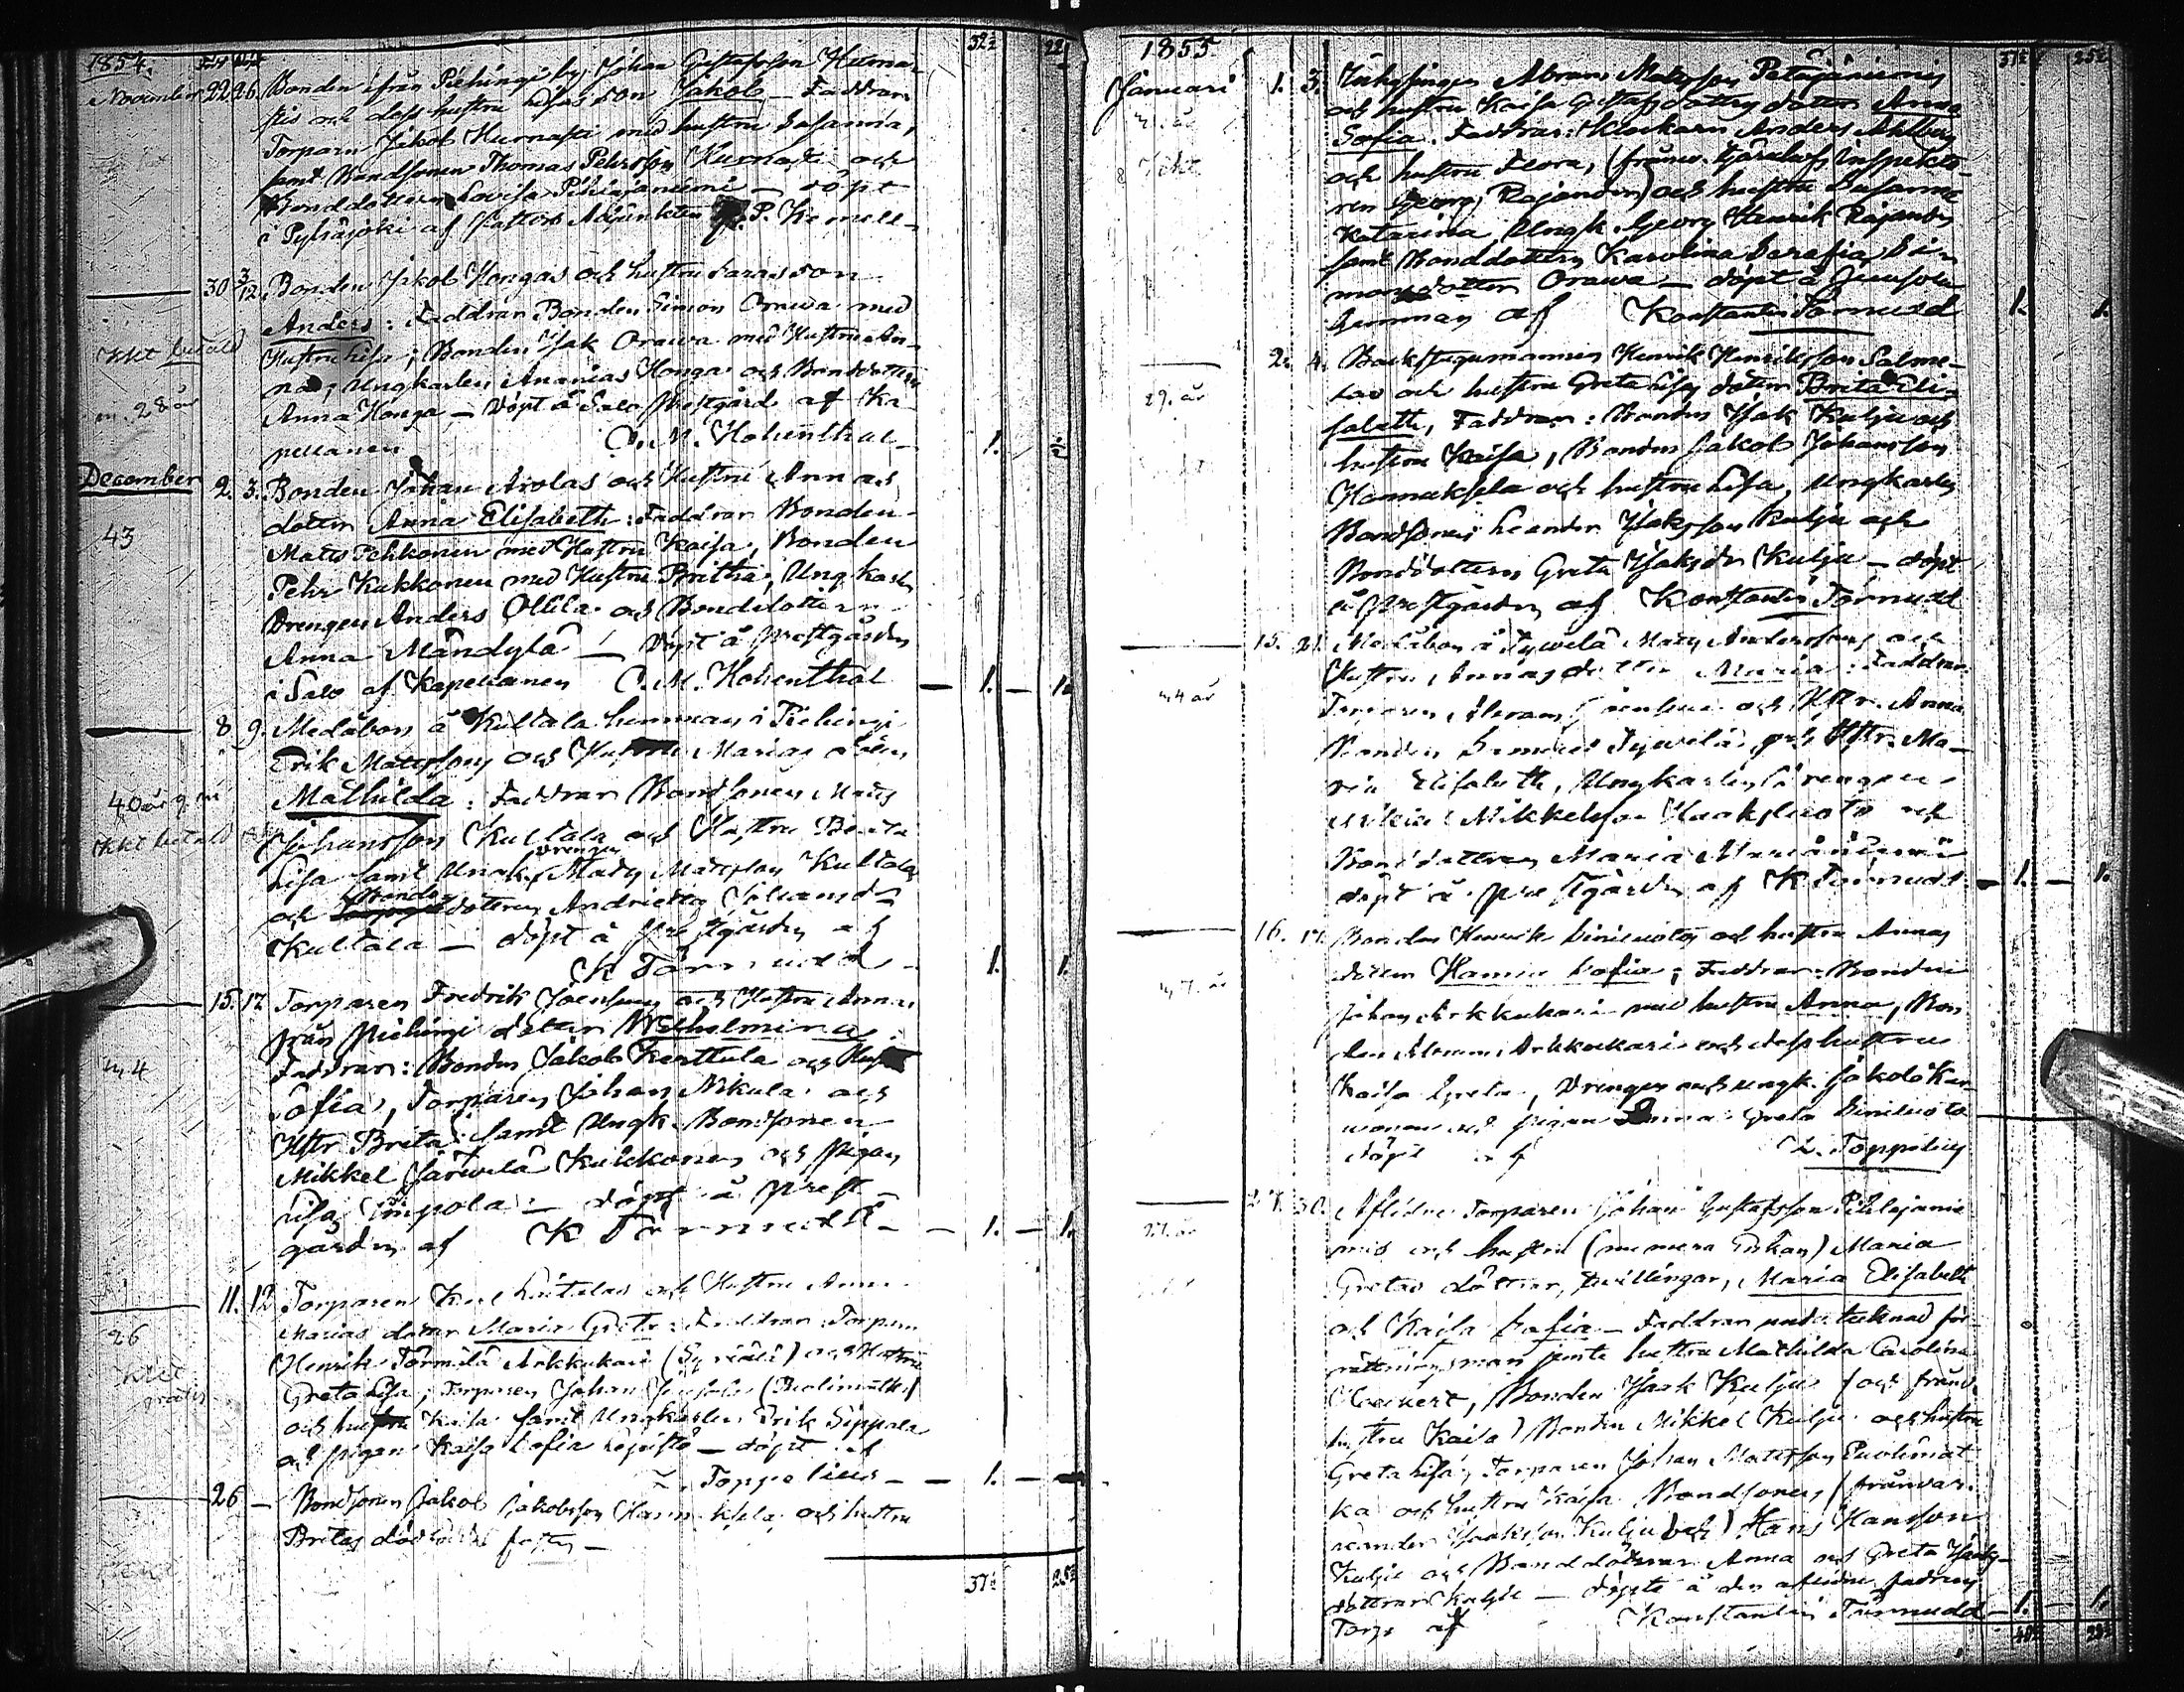 1854. Född Döpt 32½ 22
November 22 26. Bonden ifrån Piehingi by, Johan Gustafsson Hurna-
skis och dess hustru Lisas son Jakob – Faddrar:
Torparn Jakob Hurnasti med hustru Susanna,
samt Bondsonen Thomas Pehrsson Hurnasti och
Bonddottren Lovisa Pihlajaniemi – döpt
i Pyhäjoki af Pastors Adjunkten P. Kemell –
30 3/12. Bonden Jakob Hongas och hustru Saras son
Anders: Faddrar Bonden Simon Orawa med
Hustru Lisa; Bonden Isak Orawa med Hustru An-
na; Ungkarlen Ananias Honga och Bonddottren
Anna Honga – Döpt å Salo Prestgård af Ka-
pellanen C. M. Hohenthal – 1.
ickt betald
m. 28 år
December 2. 3. Bonden Johan Arolas och Hustru Annas
dotter Anna Elisabeth: Faddrar Bonden
Matts Tehkonen med Hustru Kaisa, Bonden
Pehr Kukkonen med Hustru Britha, Ungkarln
Drengen Anders Ollila och Bonddottern
Anna Mändylä – Döpt å Prestgården
i Salo af Kapellanen C. M. Hohenthal – 1. – 1.
43
8 9. Medåbon å Kultala hemman i Piehingi
Erik Matssons och Hustru Marias dotter
Mathilda: Faddrar Bondsonen Matts
Johansson Kultala och Hustru Brita
Lisa samt Ungk. drengen Matts Matsson Kultala
och Bonde dottren Andrietta Johansdr
Kultala – döpt å Prestgården af
K Törnudd – 1. 1.
40 år 9. m
ickt betald
15. 17. Torparen Fredrik Joensuus och Hustru Annas
från Piehingi dotter Wilhelmina:
Faddrar: Bonden Jakob Kerttula och Hust
Sofia, Torparen Johan Nikula och
Hstr Brita, samt Ungk. Bondsonen
Mikkel Järwelä Kukkonen och Pigan
Lisa Impola – döpt å Prest-
gården af K Törnudd – – 1. – 1.
m 4
11. 12 Torparen Hustru Anna
Marias dotter Maria Greta: Faddrar Torparn
Henrik Törmilä Arkkukari och Hustru
Greta Lisa; Torparen Johan
och hustru Kaisa samt Ungkarlen Erik Sippala
och pigan Kaisa Sofia – döpt af
Z. Toppelius – – 1. –
26
gratis
26 – Bondsonen Jakob Jakobsson Hannuksela och hustru
Britas dödfödda foster –
37½ 25½
1855 37½ 25½
Januari 1. 3. Inhysingen Abram Matsson Petäjäniemis
och hustru Kaisa Gustafsdotters dotter Anna
Sofia. Faddrar: Klockarn Anders Ahlberg
och hustru Flora, (frånv. Tjärahofs Inspekto-
ren Georg Rajander) och hustru Susanna
Katarina, Ungk. Georg Henrik Rajander
samt Bonddottern Karolina Serafia Si-
monsdotter Orawa – döpt å Junsola
hemman af Konstantin Törnudd 1. 1.
2. 4. Backstugumannen Henrik Henriksson Salme-
las och hustru Greta Lisas dotter Brita Eli-
sabeth, Faddrar: Bonden Isak Kulju och
hustru Kaisa, Bonden Jakob Johansson
Hannuksela och hustru Lisa, Ungkarln
Bondsonen Leander Isaksson Kulju och
Bonddottern Greta Isaksdr Kulju – döpt
å Prestgården af Konstantin Törnudd
29. år
15. 21. Medåbon å Tywelä Matts Anderssons och
Hustru Annas dotter Maria: Faddrar:
Torparen Abram Joensuu och Hstr. Anna
Bonden Samuel Tywelä och Hstr. Ma-
ria Elisabeth, Ungkarlen Drengen
Mikkelsson och
Bonddottren Maria
döpt å prestgården af K Törnudd – 1. – 1.
m 4 år
16. 17. Bonden Henrik Siniluotos och hustru Annas
dotter Hanna Sofia; Faddrar: Bonden
Johan Arkkukari med hustru Anna, Bon
den Abram Arkkukari och dess hustru
Kaisa Greta, Drengen och ungk. Jakob Kur-
wonen och pigan Anna Greta Siniluoto
döpt af Z. Toppelius
m 7. år
27. 30. Aflidne Torparen Johan Gustafsson Pihlajanie
mis och hustru (numera Enkan) Maria
Gretas döttrar, twillingar, Maria Elisabeth
och Kaisa Sofia – Faddrar undertecknad för-
rättningsman jemte hustru Mathilda Carolina
Bonden Isak Kulju (och frånv.
hustru Kaisa) Bonden Mikkel Kulju och hustru
Greta Lisa, Torparen Johan Matsson Puolimat
ka och hustru Kaisa Bondsonen (frånvar.
Leander Isaksson Kulju och) Hans Hansson
Kulju och Bonddöttrar Anna och Greta Isaks-
döttrar Kulju – döpte å den aflidne fadrens
Torp af Konstantin Törnudd – 1. – 1.
27. år